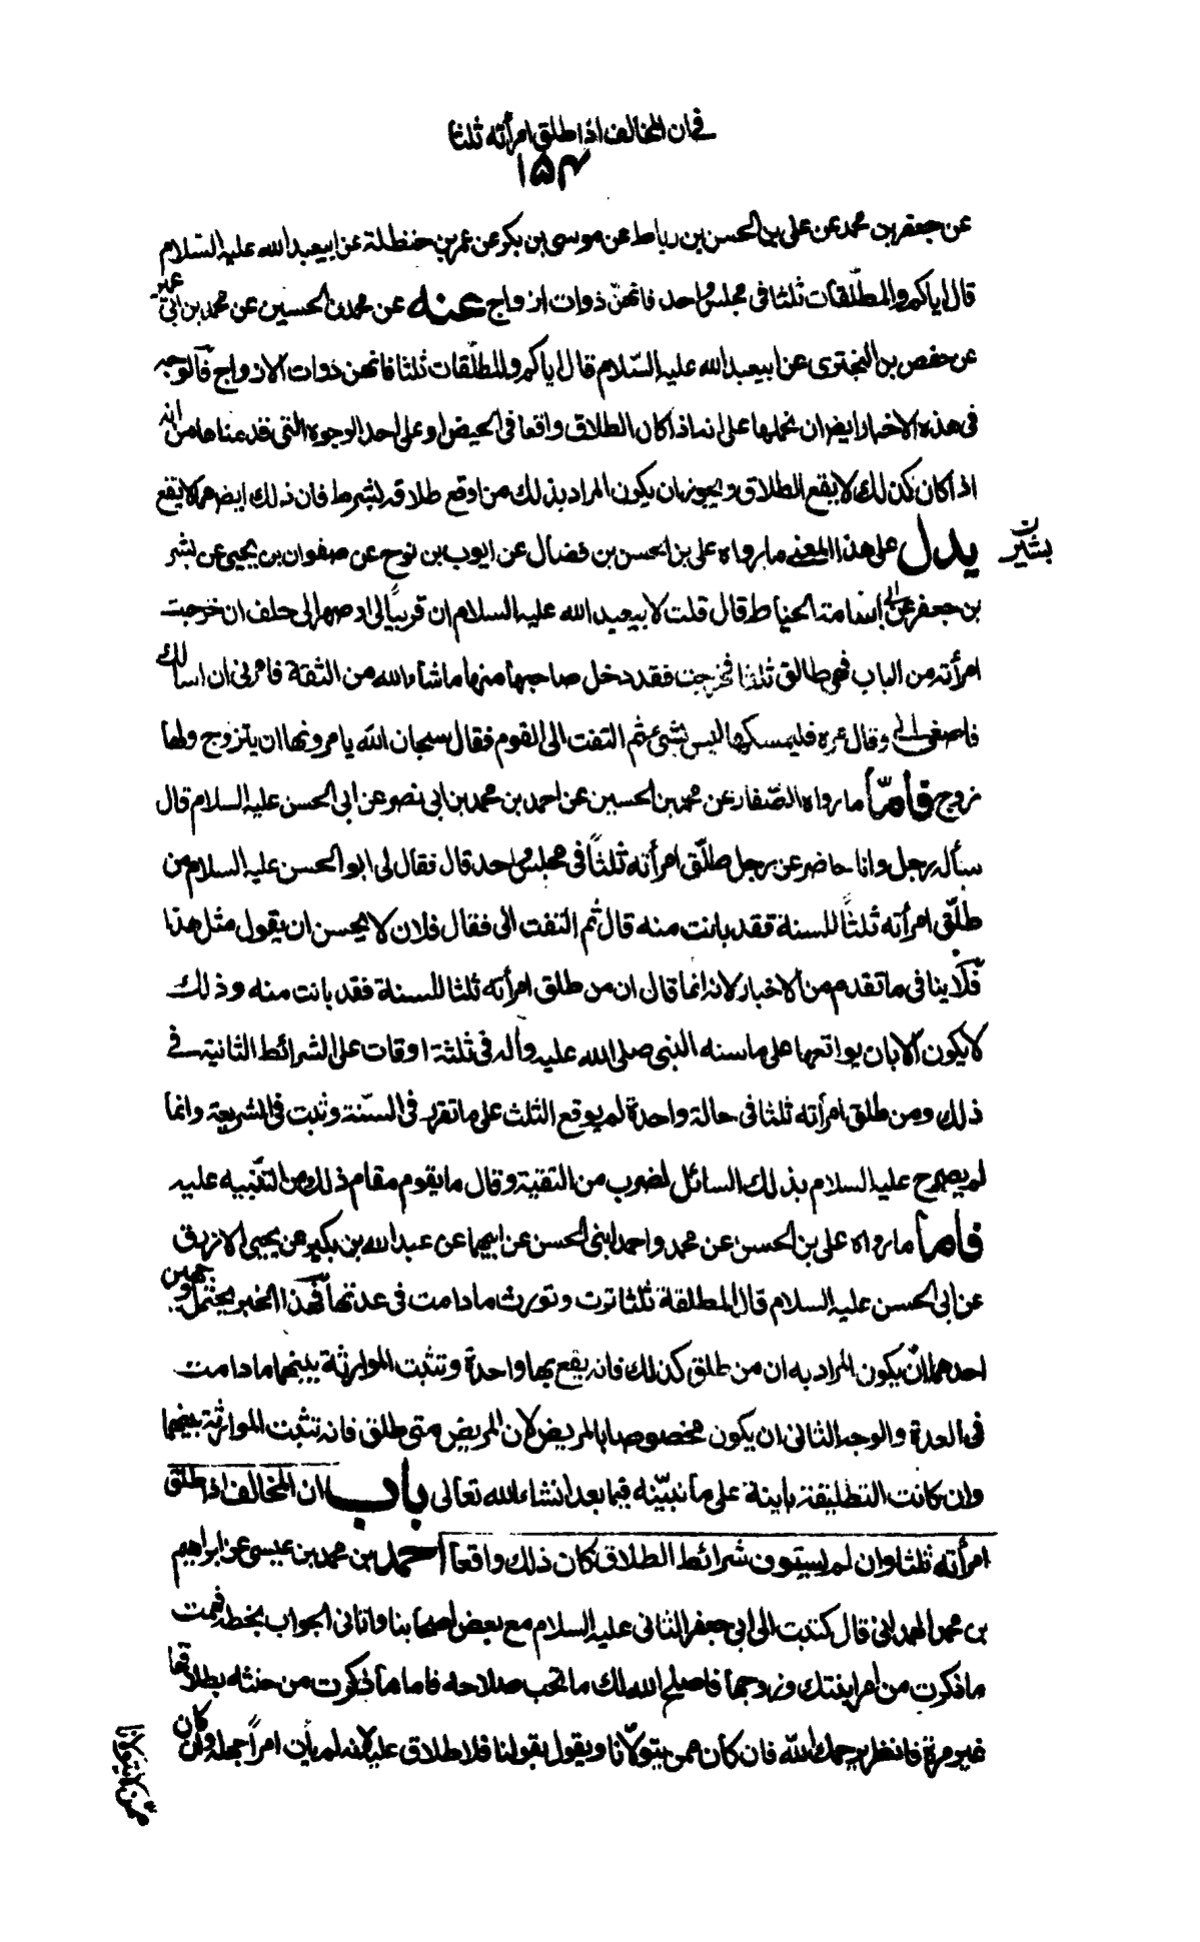 في ان المخالف اذا طلق امرأته ثلثا
١٥٤
عن جعفر بن محمد عن على بن الحسن بن رباط عن موسى بن بكر عن عمر بن حنظلة عن ابيعبد الله عليه السّلام
قال اياكم والمطلّقات ثلثا فى مجلس واحد فانهنّ ذوات ازواج عنه عن محمد بن الحسين عن محمد بن ابى عمير
عن حفص بن البخترى عن ابيعبد الله عليه السّلام قال اياكم والمطلّقات ثلثا فانهن ذوات الازواج فالوجه
فى هذه الاخبار ايضا ان نحملها على انه اذا كان الطلاق واقعا فى الحيض او على احد الوجوه التى قدمناها من انه
اذا كان كذلك لا يقع الطلاق ويجوز ان يكون المراد بذلك من اوقع طلاقه لشرط فان ذلك ايضا مما لا يقع
يدل على هذا المعنى ما رواه على بن الحسن بن فضال عن ايوب بن نوح عن صفوان بن يحيى عن بشر
بشير ن
بن جعفر عن ابى اسامة الحناط قال قلت لابيعبد الله عليه السلام ان قريبًا لى او صهرا لى حلف ان خرجت
امرأته من الباب فهى طالق ثلثا فخرجت فقد دخل صاحبها منها ما شاء الله من الثقة فامرنى ان اسالك
فاصغى الى وقال مره فليمسكها ليس بشئ ثم التفت الى القوم فقال سبحان الله يامرونها ان يتزوج ولها
زوج فأمّا ما رواه الصّفار عن محمد بن الحسين عن احمد بن محمد بن ابى نصر عن ابى الحسن عليه السلام قال
سأله رجل وانا حاضر عن رجل طلّق امرأته ثلثاً فى مجلس واحد قال فقال لى ابو الحسن عليه السلام من
طلّق امرأته ثلثاً للسنة فقد بانت منه قال ثم التفت الى فقال فلان لا يحسن ان يقول مثل هذا
فلا ينافى ما تقدم من الاخبار لانه انما قال ان من طلق امرأته ثلثا للسنة فقد بانت منه وذلك
لا يكون الا بان يواقعها على ما سنه النبى صلى الله عليه وآله فى ثلثة اوقات على الشرائط الثانية فى
ذلك ومن طلق امرأته ثلثا فى حالة واحدة لم يوقع الثلث على ما تقرر فى السّنة وثبت فى الشريعة وانما
لم يصرح عليه السلام بذلك السائل لضرب من التقية وقال ما يقوم مقام ذلك من التنبيه عليه
فأما ما رواه على بن الحسن عن محمد واحمد ابنى الحسن عن ابيهما عن عبد الله بن بكير عن يحيى الازرق
عن ابى الحسن عليه السلام قال المطلقة ثلثا ترث وتورث ما دامت فى عدتها فهذا الخبر يحتمل وجهين
احدهما ان يكون المراد به ان من طلق كذلك فانه يقع بها واحدة وتثبت الموارثة بينهما ما دامت
فى العدة والوجه الثانى ان يكون مخصوصا بالمريض لان المريض متى طلق فانه تثبت الموارثة بينهما
وان كانت التطليقة باينة على ما نبيّنه فيما بعد انشاء الله تعالى باب ان المخالف اذا طلق
امرأته ثلثا وان لم يستوف شرائط الطلاق كان ذلك واقعا احمد بن محمد بن عيسى عن ابراهيم
بن محمد الهمدانى قال كتبت الى ابى جعفر الثانى عليه السلام مع بعض اصحابنا واتانى الجواب بخطه فهمت
ما ذكرت من امر ابنتك وزوجها فاصلح الله لك ما تحب صلاحه فاما ما ذكرت من حنثه بطلاقها
غير مرة فانظر يرحمك الله فان كان ممن يتولّانا ويقول بقولنا فلا طلاق عليه لانه لم يأت امراً جهله وان كان
ممن لا يتولانا